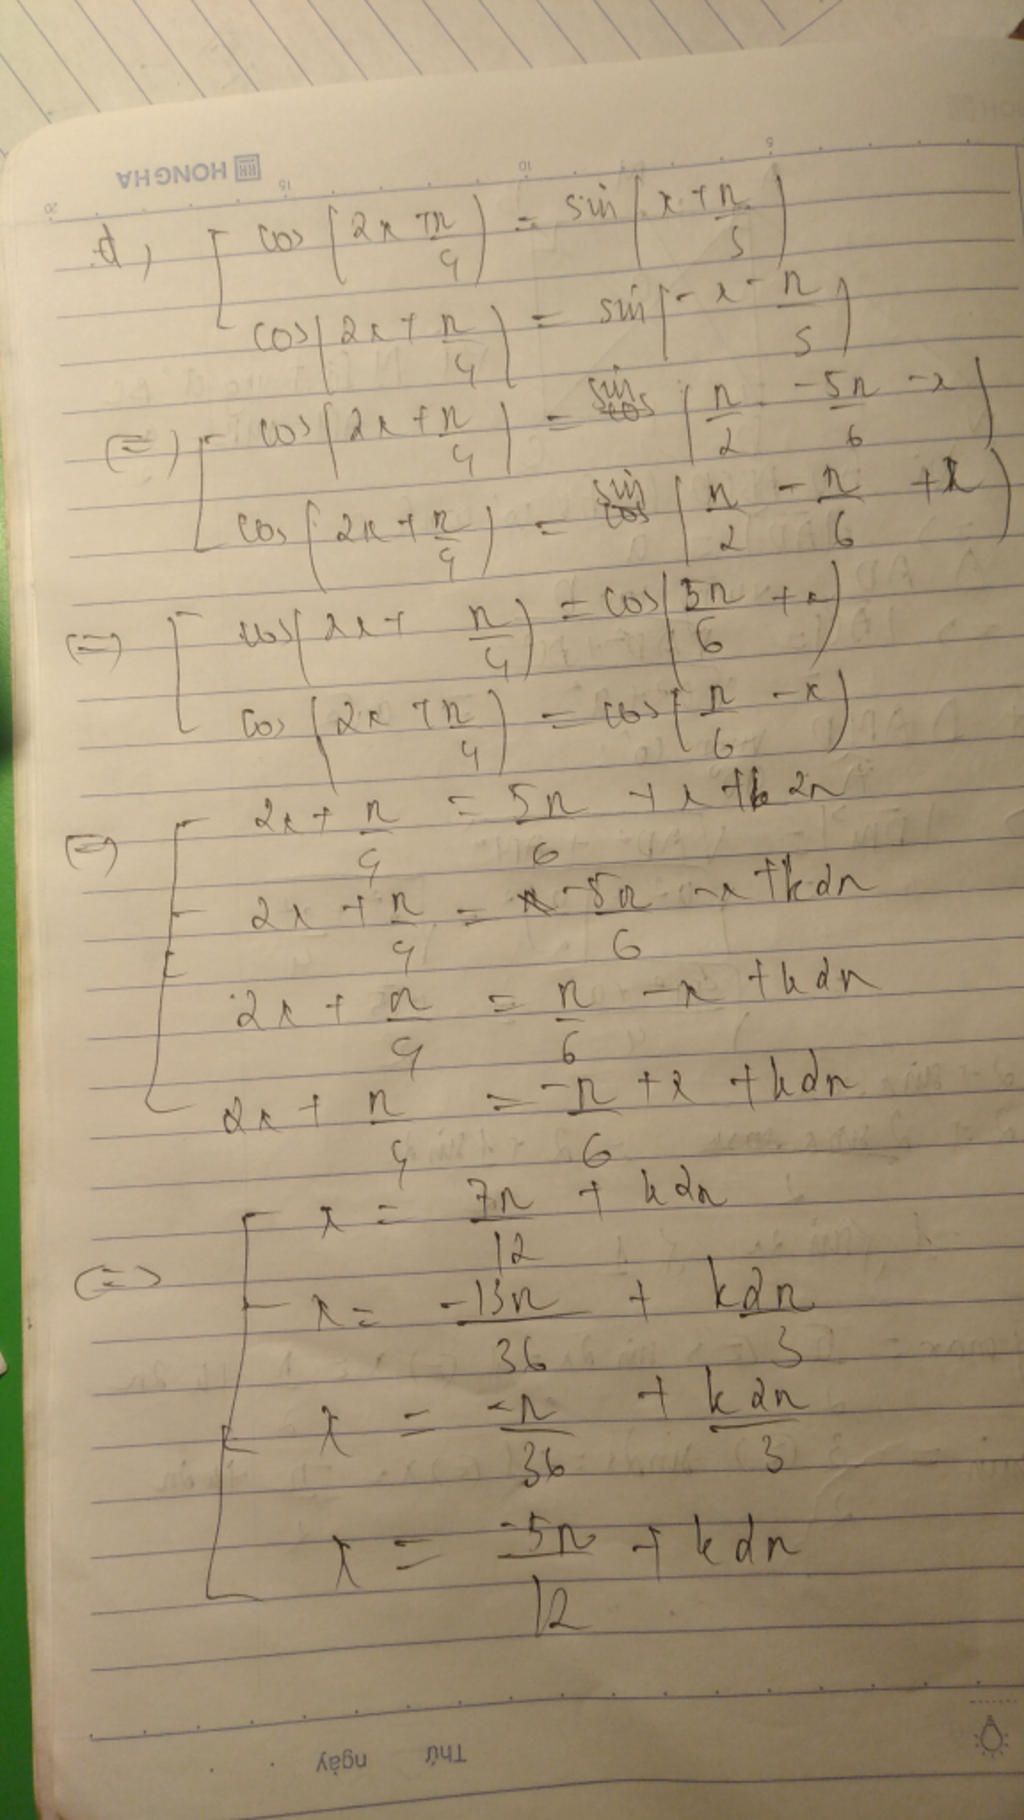 HONG HA
20 15 10 5
d, [ cos(2x + π/4) = sin(x + π/5)
cos(2x + π/4) = sin(-x - π/5)
(=) [ cos(2x + π/4) = sin(π/2 - 5π/6 - x)
cos(2x + π/4) = sin(π/2 - π/6 + x)
(=) [ cos(2x + π/4) = cos(5π/6 + x)
cos(2x + π/4) = cos(π/6 - x)
(=) [ 2x + π/4 = 5π/6 + x + k2π
2x + π/4 = -5π/6 - x + k2π
2x + π/4 = π/6 - x + k2π
2x + π/4 = -π/6 + x + k2π
(=) [ x = 7π/12 + k2π
x = -13π/36 + k2π/3
x = -π/36 + k2π/3
x = -5π/12 + k2π
Thứ ngày